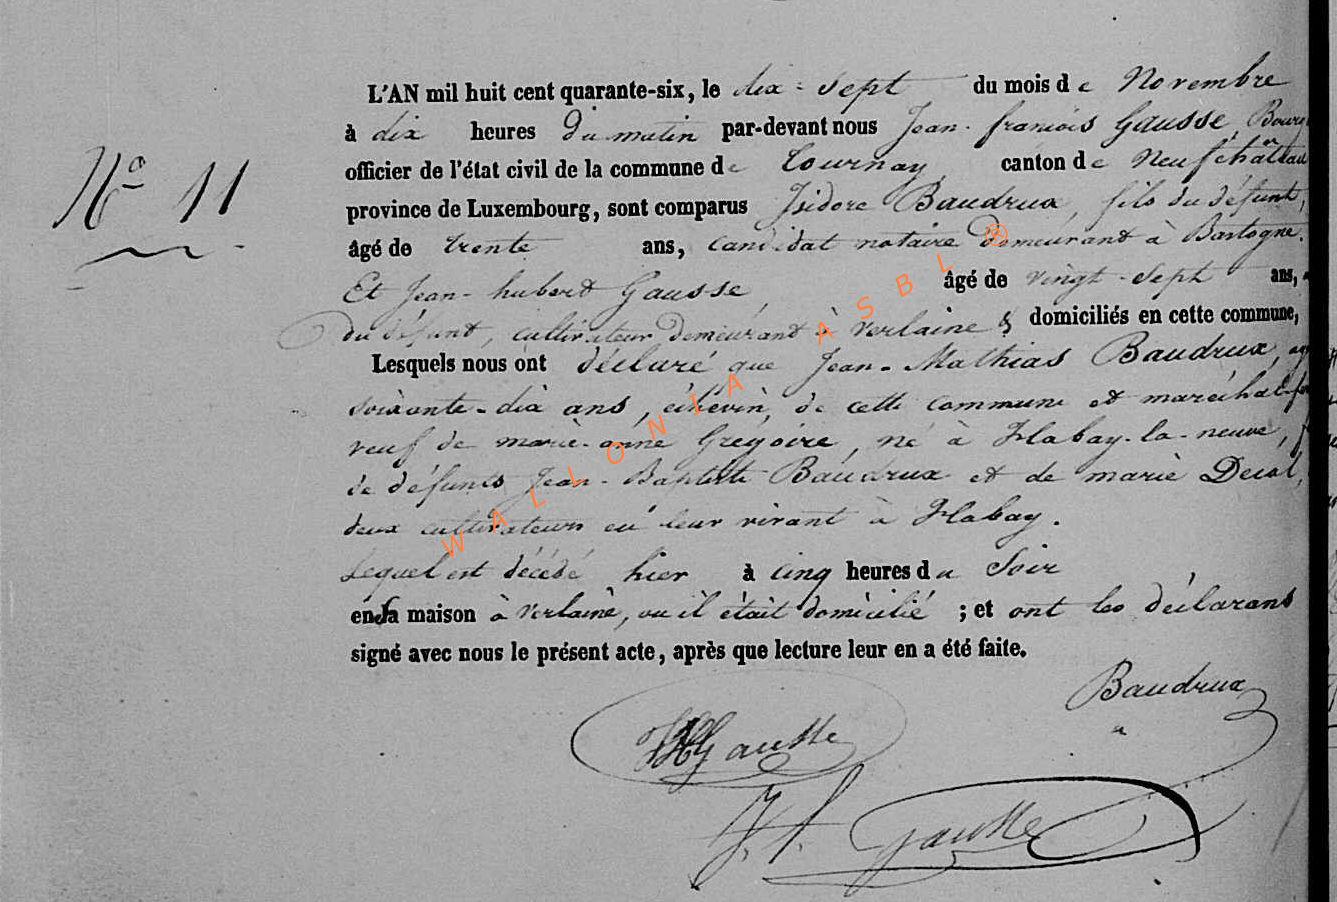 L'AN mil huit cent quarante-six, le dix-sept du mois de Novembre
à dix heures du matin par-devant nous Jean-françois Gausse, Bourg
officier de l'état civil de la commune de Tournay, canton de Neufchâteau
N° 11
province de Luxembourg, sont comparus Isidore Baudrux, fils du défunt,
âgé de trente ans, candidat notaire demeurant à Bastogne.
Et Jean-hubert Gausse, âgé de vingt-sept ans,
du défunt, cultivateur demeurant à Verlaine & domiciliés en cette commune,
Lesquels nous ont déclaré que Jean-Mathias Baudrux, ag
soixante-dix ans, échevin de cette commune et maréchal-fer
veuf de marie-anne Grégoire, né à Habay-la-neuve, f
de défunts Jean-Baptiste Baudrux et de marie Decol,
deux cultivateurs en leur vivant à Habay.
Lequel est décédé hier à cinq heures du Soir
en sa maison à Verlaine, ou il était domicilié ; et ont les déclarans
signé avec nous le présent acte, après que lecture leur en a été faite.
Baudrux
JHGausse
J. f. Gausse
WALLONIA ASBL ®